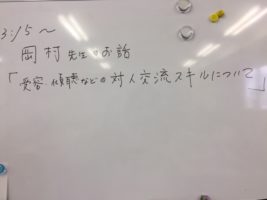 3:15～
岡村先生のお話
「受容・傾聴などの対人交流スキルについて」